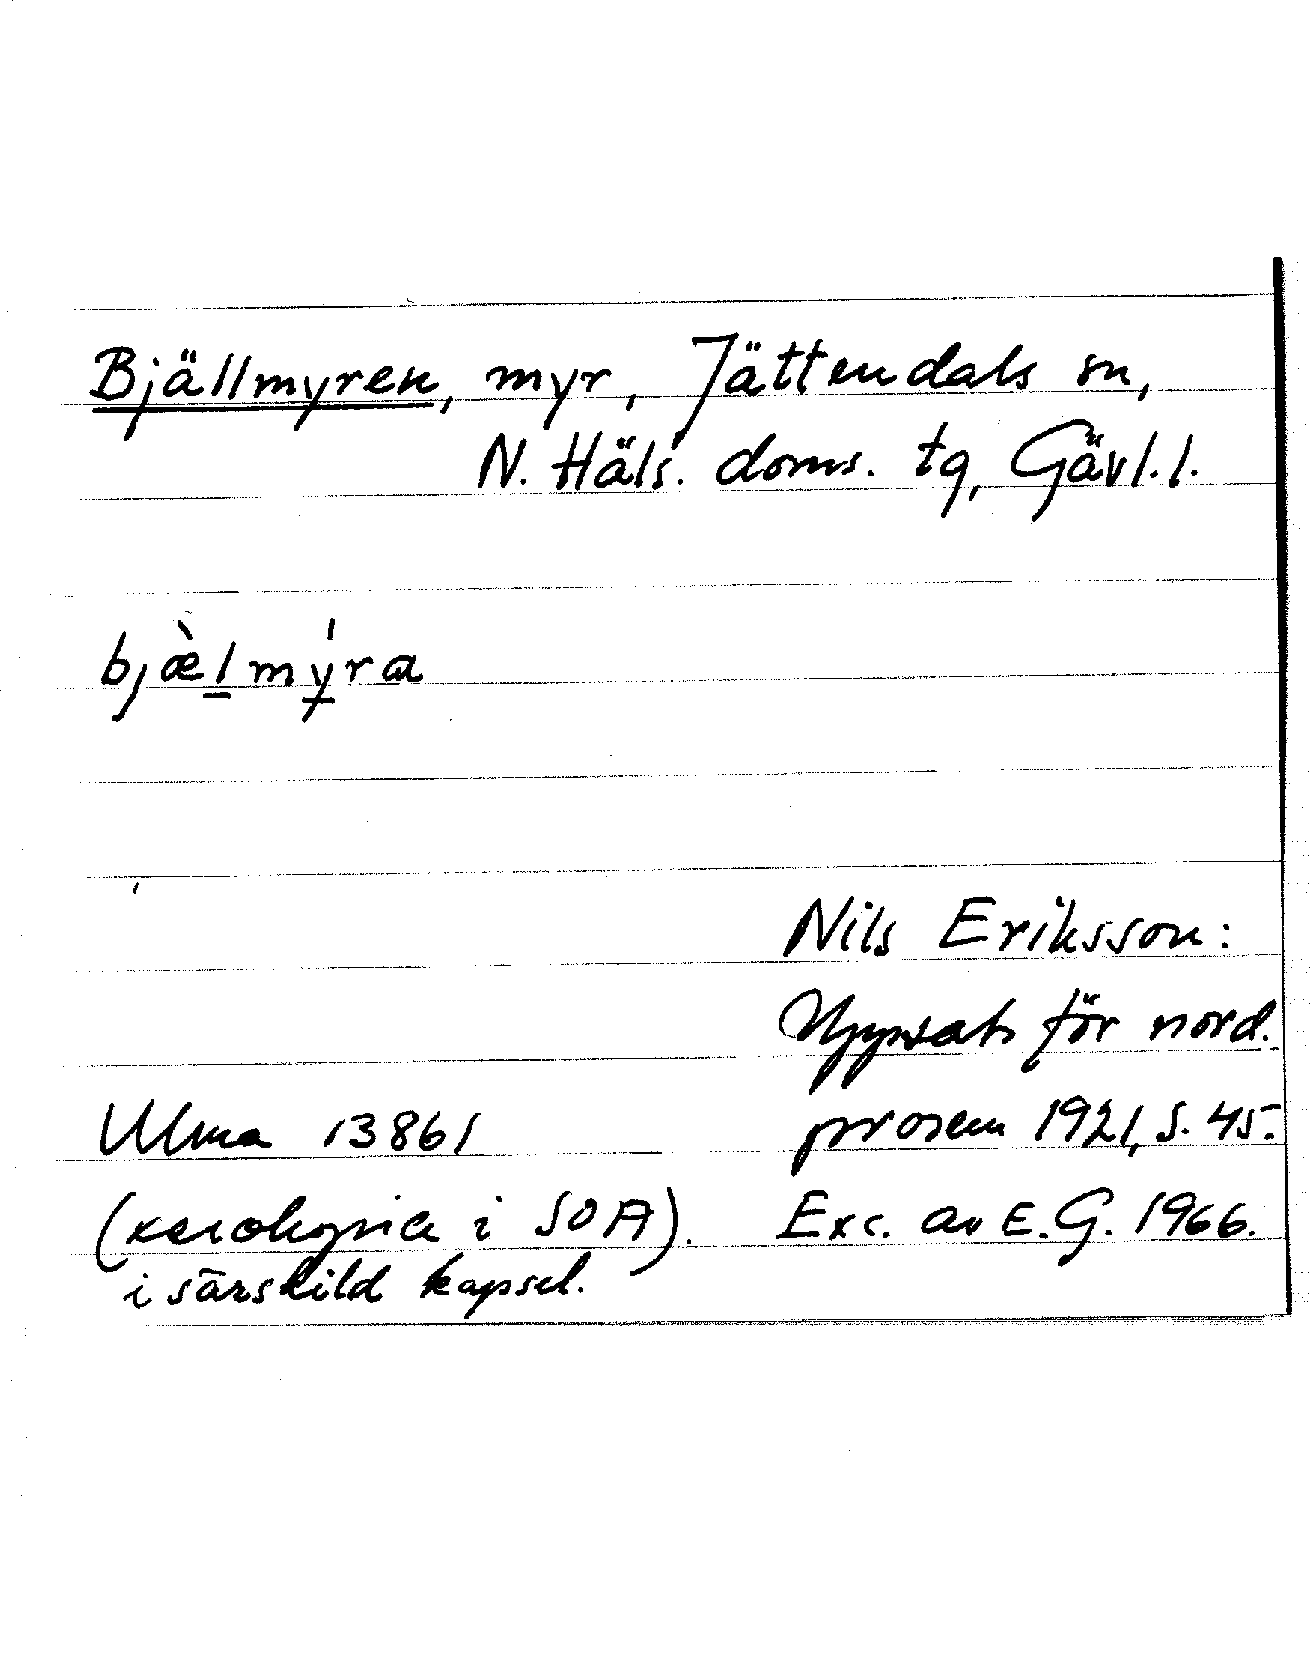 Bjällmyren, myr, Jättendals sn,
N. Häls. doms. tg, Gävl.l.
bjæ̀l̲mý̲ra
Nils Eriksson:
Uppsats för nord.
Ulma 13861
prosem 1921, s. 45.
(xerokopia i SOA).
Exc. av E.G. 1966.
i särskild kapsel.